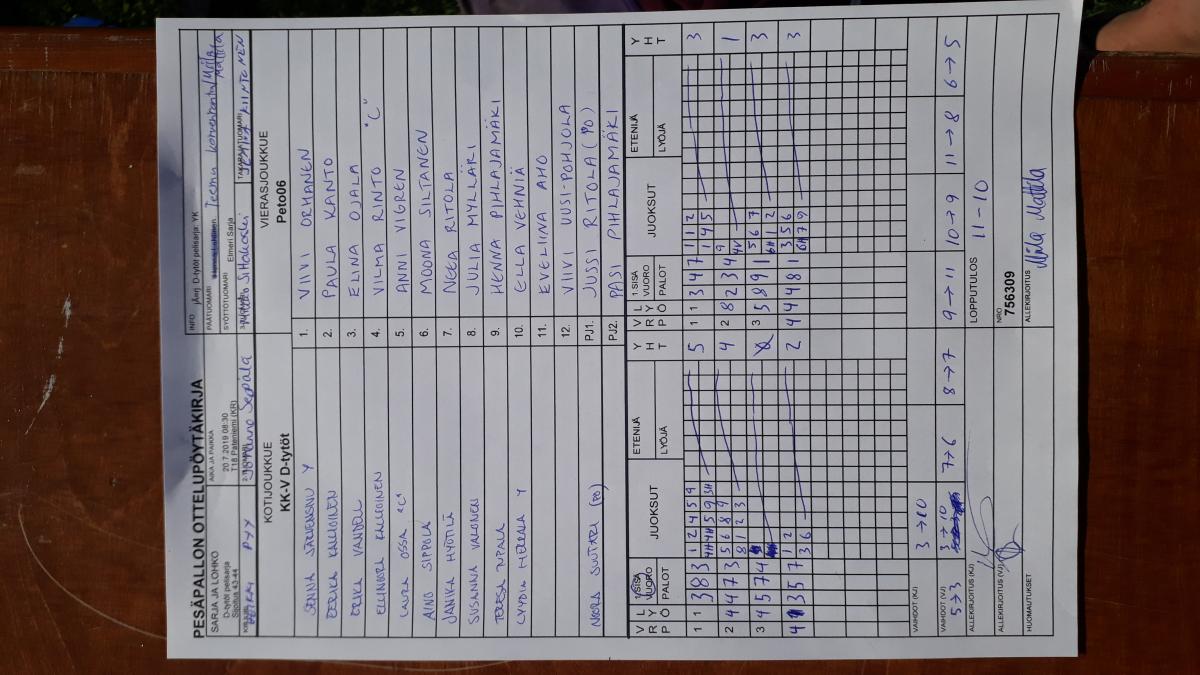 PESÄPALLON OTTELUPÖYTÄKIRJA
SARJA JA LOHKO
D-tytöt pelisarja
Sijoitus 43-44
AIKA JA PAIKKA
20.7.2019 08:30
T18 Pateniemi (KR)
INFO pänj. D-tytöt pelisarja: YK
PÄÄTUOMARI Teemu
SYÖTTÖTUOMARI Elmeri Sarja
Johanna Seppälä
KOTIJOUKKUE
KK-V D-tytöt
VIERASJOUKKUE
Peto06
SENNA Y 1. VIIVI ORMANEN
EERIKA KALLIOINEN 2. PAULA KANTO
ERIKA VANDELL 3. ELINA OJALA
ELLINOORA KALLIOINEN 4. VILMA RINTO "C"
LAURA OSSA "C" 5. ANNI VIGREN
AINO SIPPOLA 6. MOONA SILTANEN
JANIKA HYÖTILÄ 7. NEEA RITOLA
SUSANNA VALONEN 8. JULIA MYLLÄRI
9. HENNA PIHLAJAMÄKI
Y 10. ELLA VEHNIÄ
11. EVELIINA AHO
12. VIIVI UUSI-POHJOLA
NOORA (PO) PJ1. JUSSI RITOLA (PO)
PJ2. PASI PIHLAJAMÄKI
VRP LYÖ 1.SISÄ VUORO PALOT JUOKSUT ETENIJÄ LYÖJÄ YHT
VRP LYÖ 1.SISÄ VUORO PALOT JUOKSUT ETENIJÄ LYÖJÄ YHT
1 1 3 8 3 1 2 4 5 9 5
4H 4H 5 9 3H
1 1 3 4 7 1 1 2 3
1 4 5
2 4 4 7 3 5 6 8 9 4
8 1 2 3
2 8 2 3 4 9 1
4V
3 4 5 7 4
3 5 8 9 1 5 6 7 3
6H 1 2
4 3 5 7 1 2 2
3 6
4 4 4 8 1 3 5 6 3
6H 7 9
VAIHDOT (KJ) 3→10
VAIHDOT (VJ) 3→10
5→3 7→6 8→7 9→11 10→9 11→8 6→5
ALLEKIRJOITUS (KJ)
LOPPUTULOS 11-10
ALLEKIRJOITUS (VJ)
NRO
756309
HUOMAUTUKSET
ALLEKIRJOITUS Miila Mattila